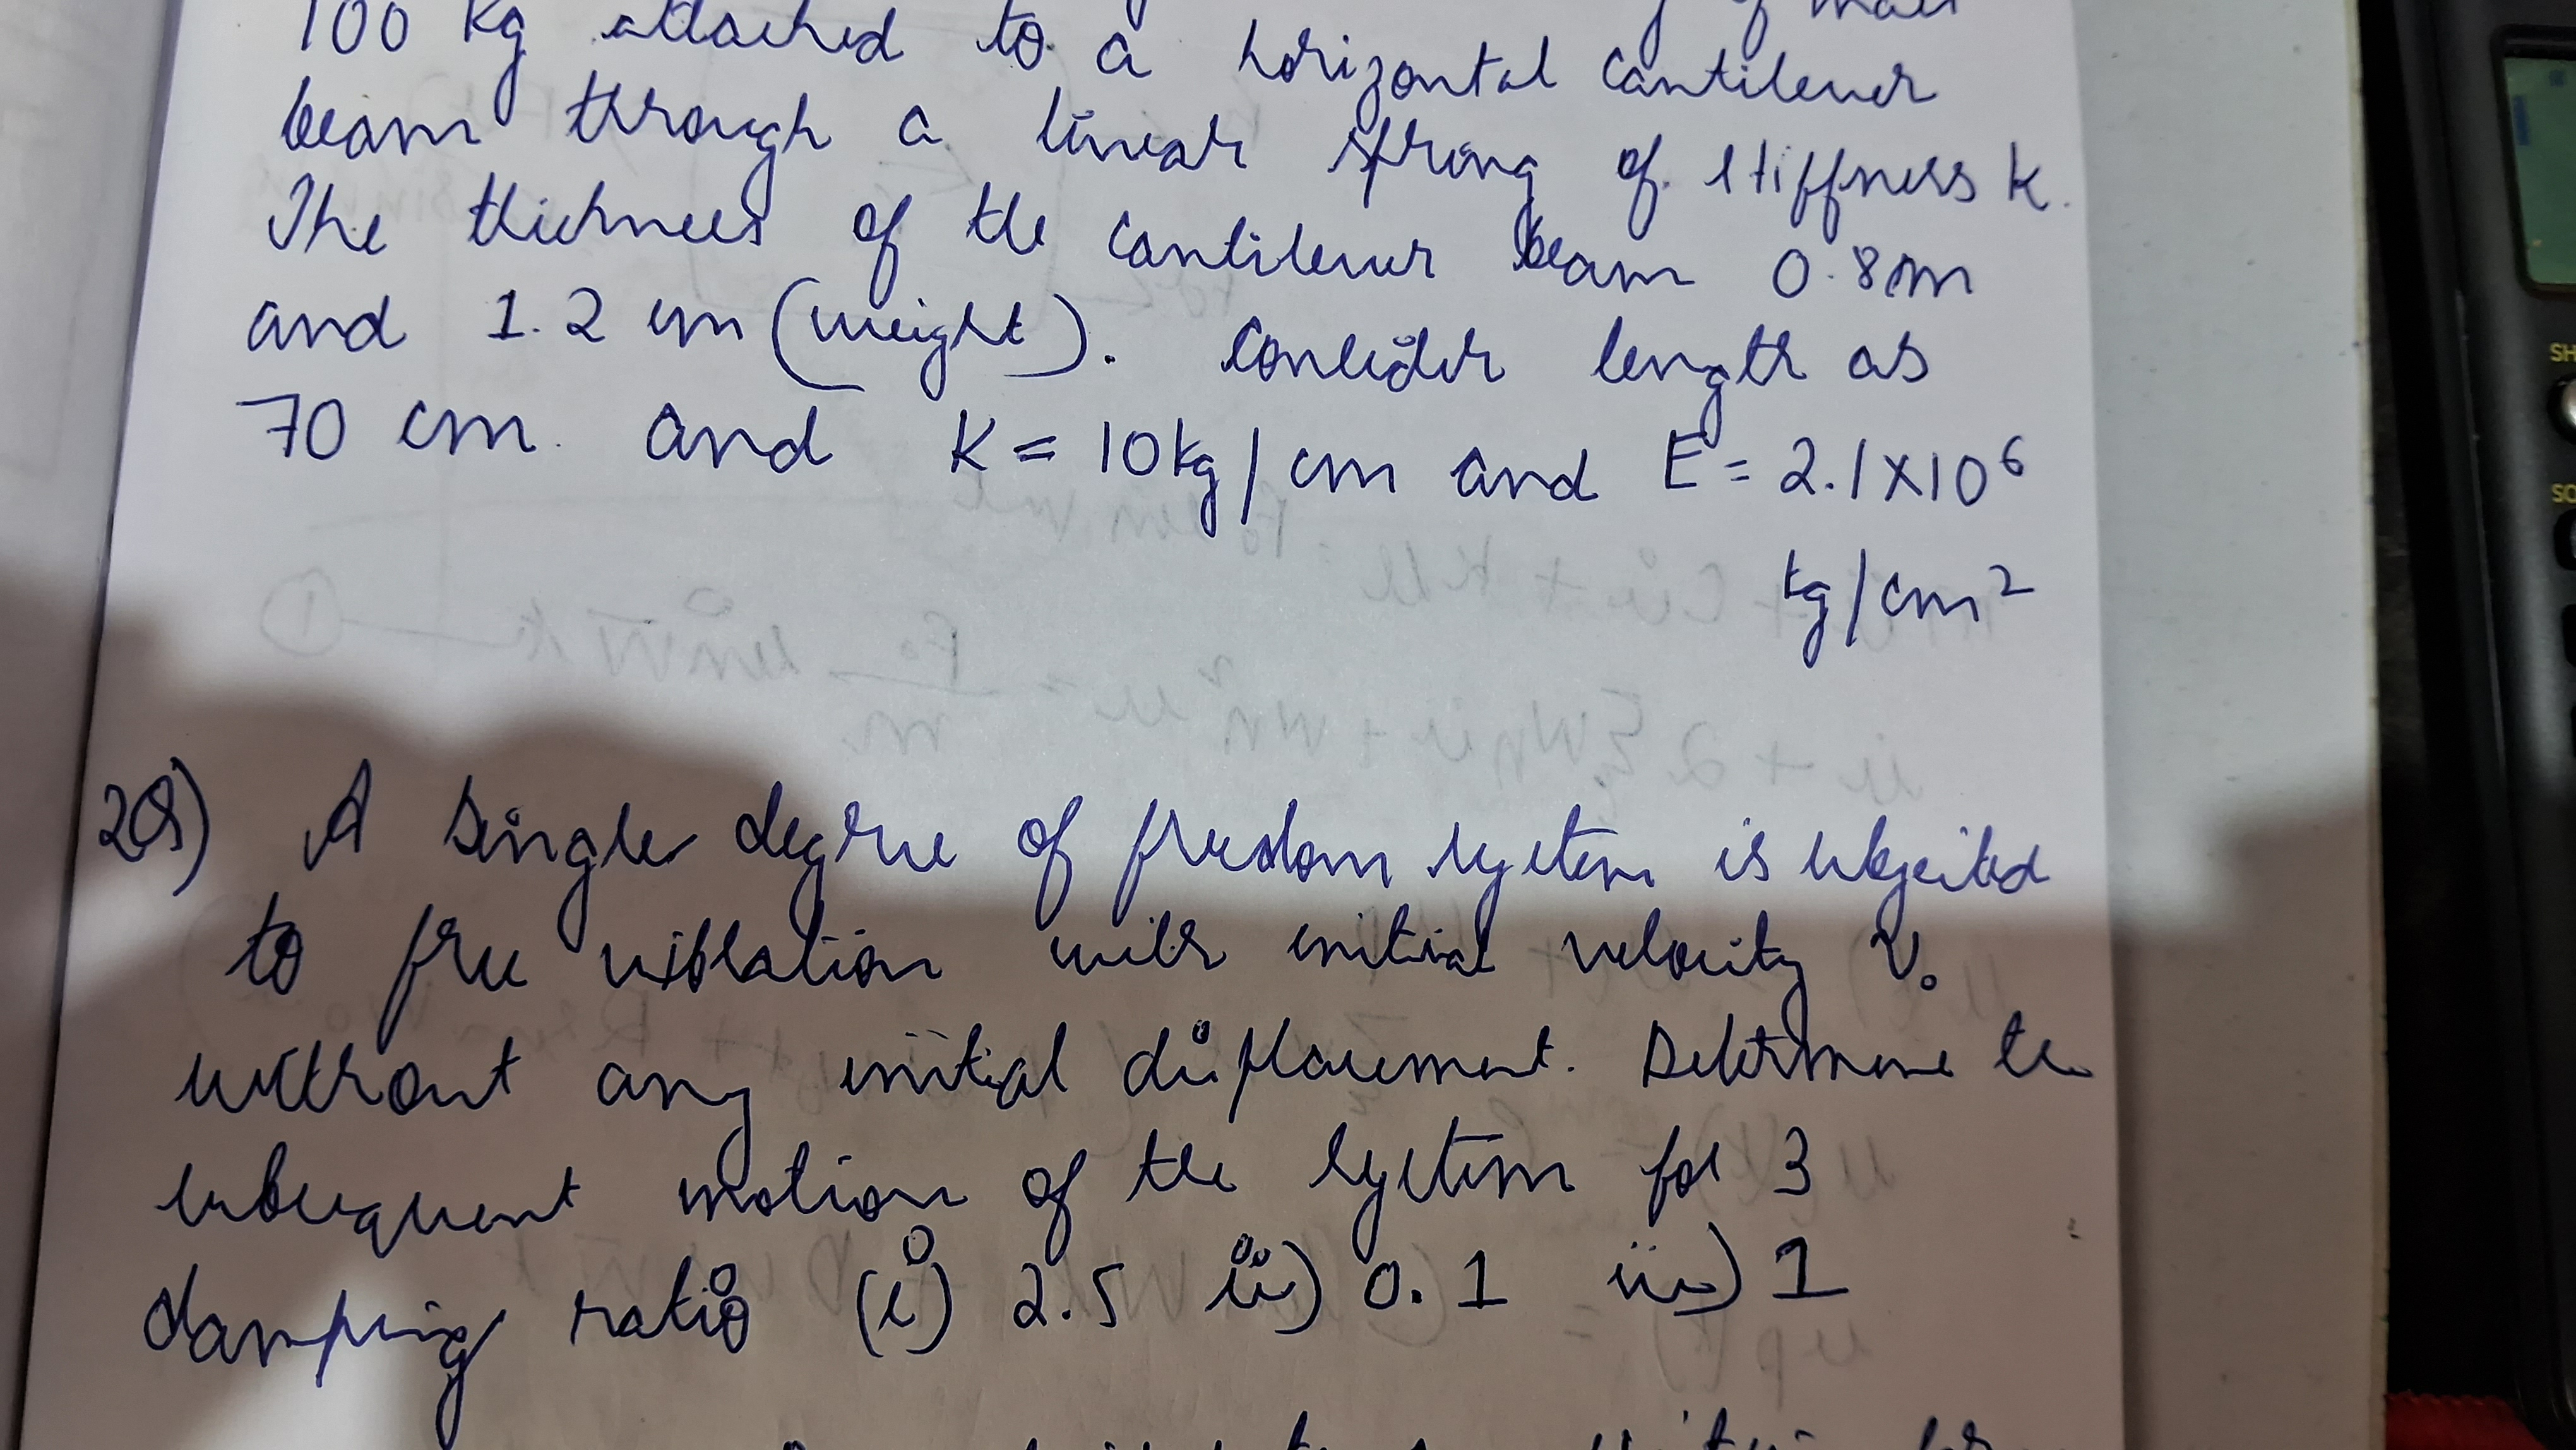 100 kg attached to a horizontal cantilever
beam through a linear spring of stiffness k.
The thickness of the cantilever beam 0.8m
and 1.2 cm (weight). Consider length as
70 cm. and K = 10kg/cm and E = 2.1×10⁶
kg/cm²
2Q) A single degree of freedom system is subjected
to free vibration with initial velocity v₀
without any initial displacement. Determine the
subsequent motion of the system for 3
damping ratio (i) 2.5 ii) 0.1 iii) 1